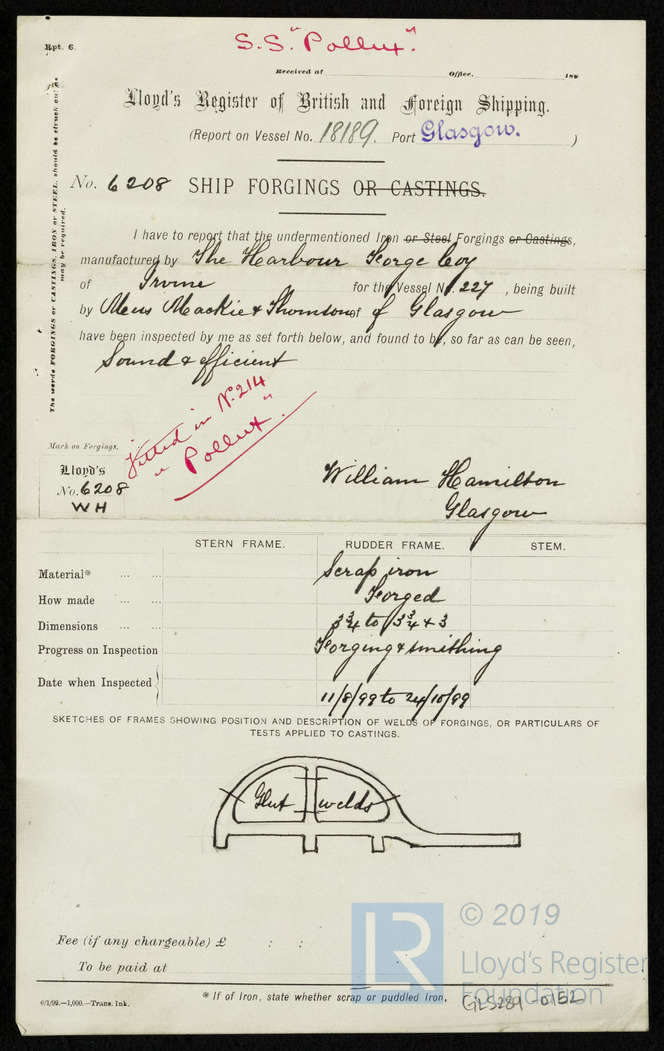 Rpt. 6.
S.S. "Pollux".
Received at Office, 189
Lloyd's Register of British and Foreign Shipping.
(Report on Vessel No. 18189. Port Glasgow. )
No. 6208 SHIP FORGINGS OR CASTINGS.
The words FORGINGS or CASTINGS, IRON or STEEL, should be struck out as
may be required.
I have to report that the undermentioned Iron or Steel Forgings or Castings,
manufactured by The Harbour Forge Coy
of Irvine for the Vessel No. 227, being built
by Mess Mackie & Thomson of Glasgow
have been inspected by me as set forth below, and found to be, so far as can be seen,
Sound & efficient
Fitted in No. 214
"Pollux".
Mark on Forgings.
Lloyd's
No. 6208
WH
William Hamilton
Glasgow
STERN FRAME. RUDDER FRAME. STEM.
Material* ... ... Scrap iron
How made ... ... Forged
Dimensions ... ... 3¾ to 3¾ & 3
Progress on Inspection Forging & smithing
Date when Inspected 11/8/99 to 24/10/99
SKETCHES OF FRAMES SHOWING POSITION AND DESCRIPTION OF WELDS OF FORGINGS, OR PARTICULARS OF
TESTS APPLIED TO CASTINGS.
Glut welds
Fee (if any chargeable) £ : :
To be paid at
* If of Iron, state whether scrap or puddled Iron,
6/1/99.—1,000.—Trans. Ink.
GLS289-0152
LR
© 2019
Lloyd's Register
Foundation